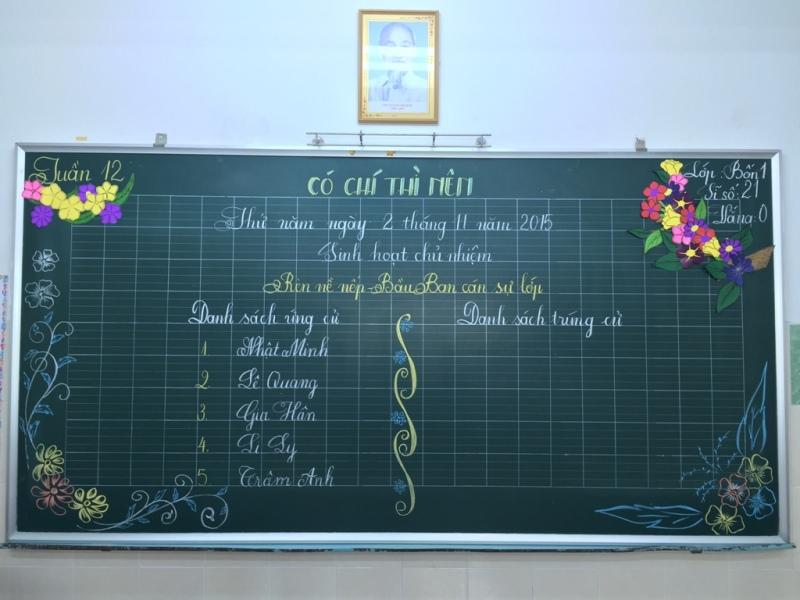 Tuần 12
Lớp : Bốn 1
Sĩ số: 21
Vắng: 0
CÓ CHÍ THÌ NÊN
Thứ năm ngày 2 tháng 11 năm 2015
Sinh hoạt chủ nhiệm
Rèn nề nếp - Bầu Ban cán sự lớp
Danh sách ứng cử
Danh sách trúng cử
1. Nhật Minh
2. Lê Quang
3. Gia Hân
4. Li Ly
5. Trâm Anh